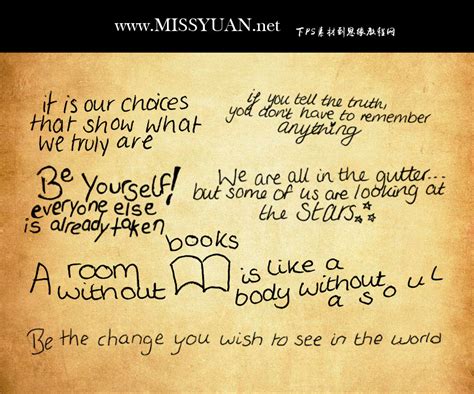 www.MISSYUAN.net 下PS素材到思缘教程网
it is our choices
that show what
we truly are
if you tell the truth,
you don't have to remember
anything
Be Yourself!
everyone else
is already taken
We are all in the gutter...
but some of us are looking at
the stars
A room
without
books
is like a
body without
a soul
Be the change you wish to see in the world